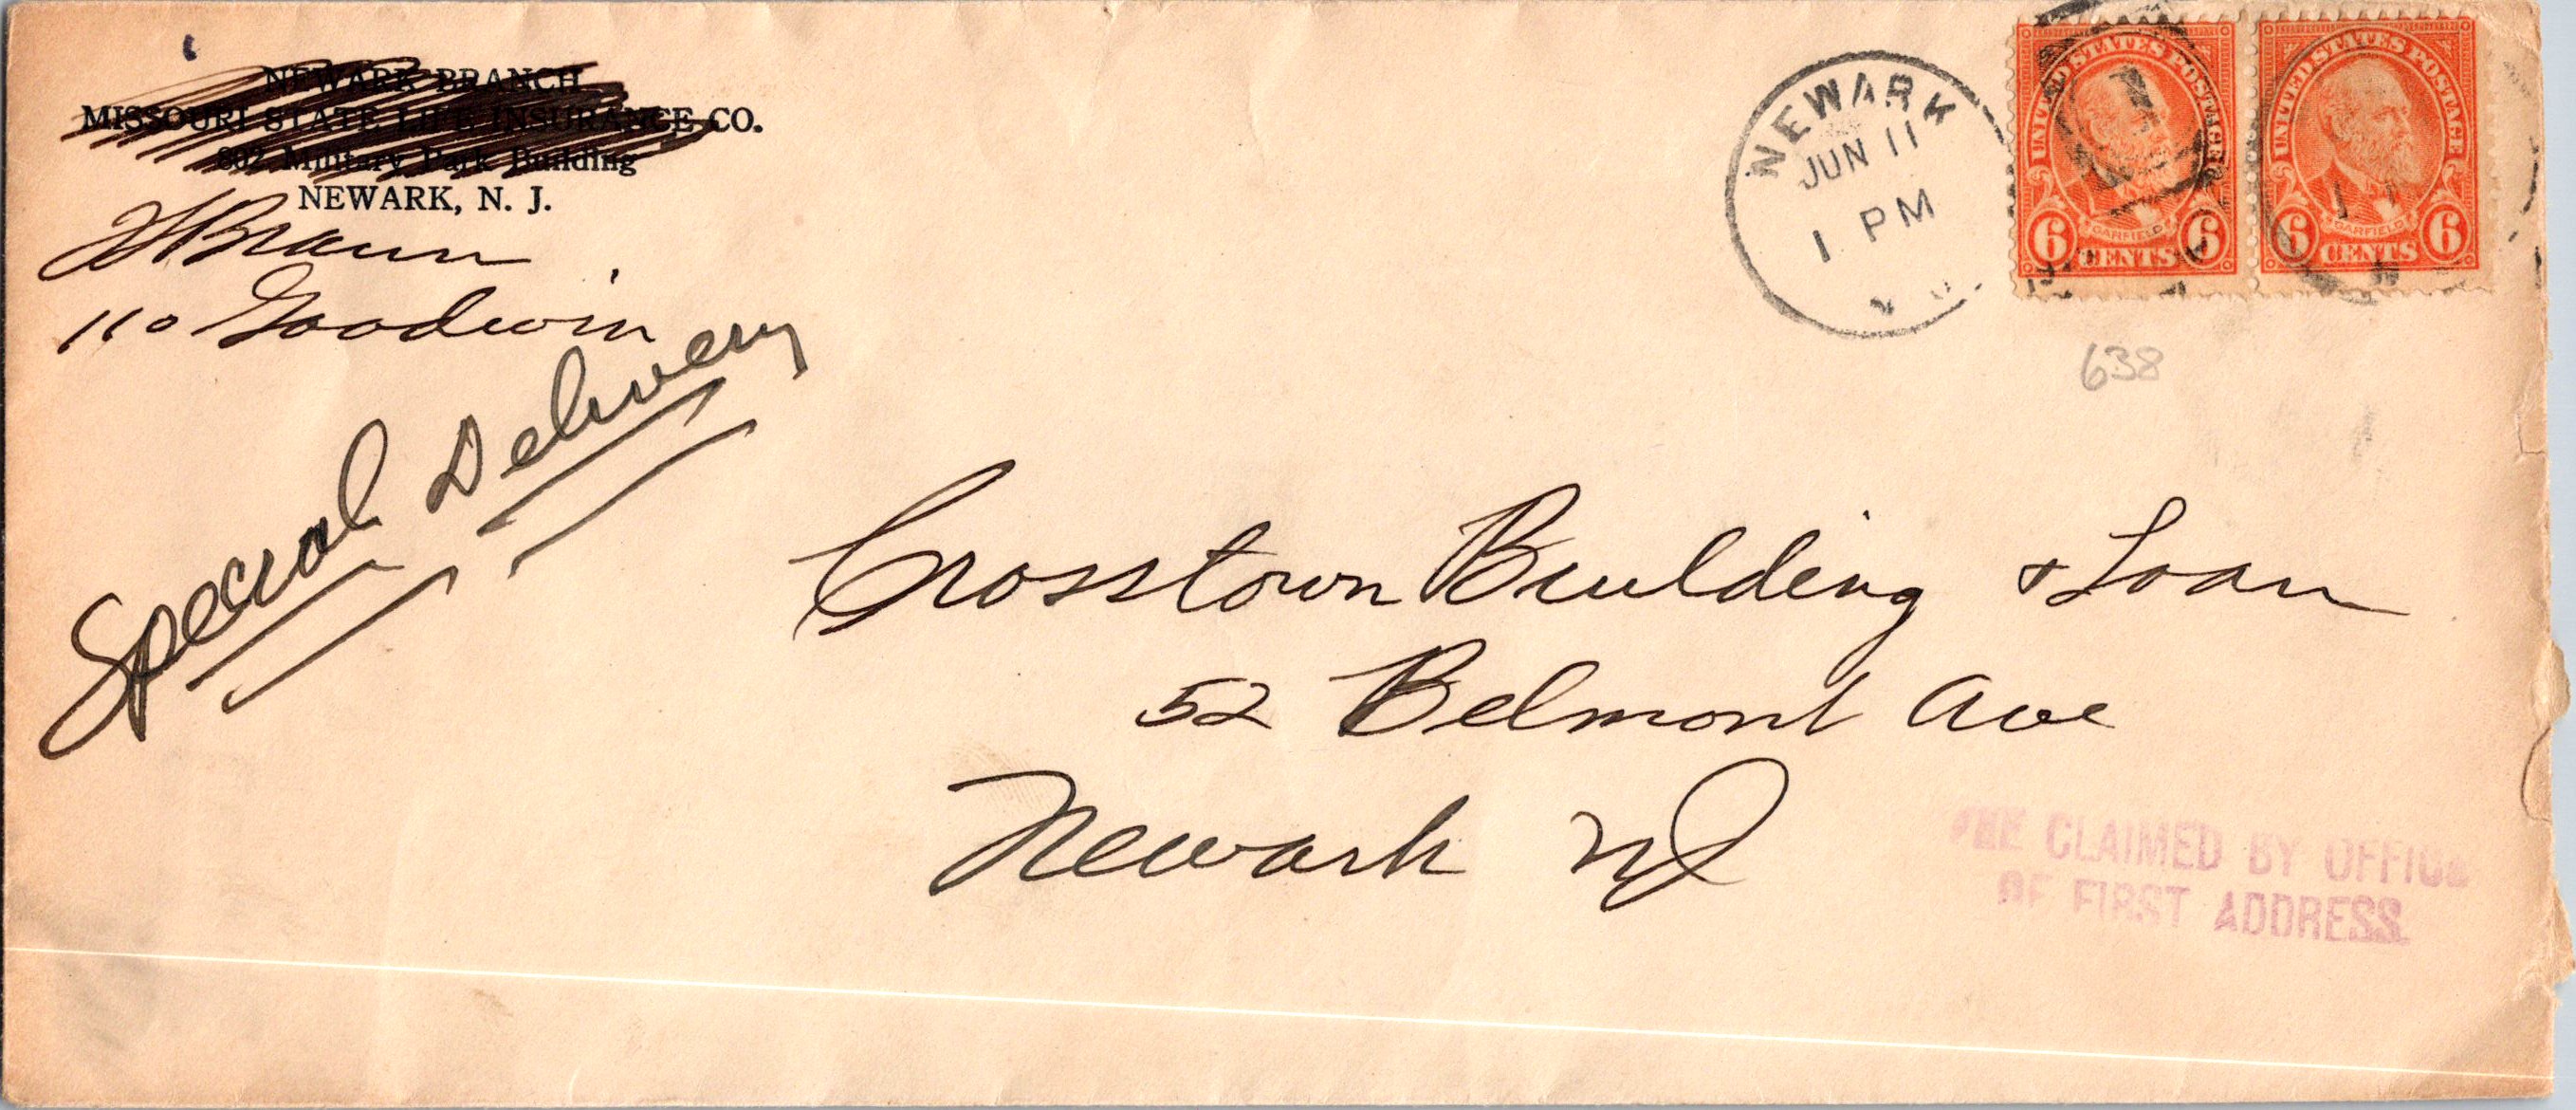 NEWARK BRANCH
MISSOURI STATE LIFE INSURANCE CO.
802 Military Park Building
NEWARK, N. J.
H Braun
110 Goodwin
Special Delivery
NEWARK
JUN 11
1 PM
UNITED STATES POSTAGE
GARFIELD
6 CENTS 6
UNITED STATES POSTAGE
GARFIELD
6 CENTS 6
638
Crosstown Building & Loan
52 Belmont Ave
Newark NJ
FEE CLAIMED BY OFFICE
OF FIRST ADDRESS.